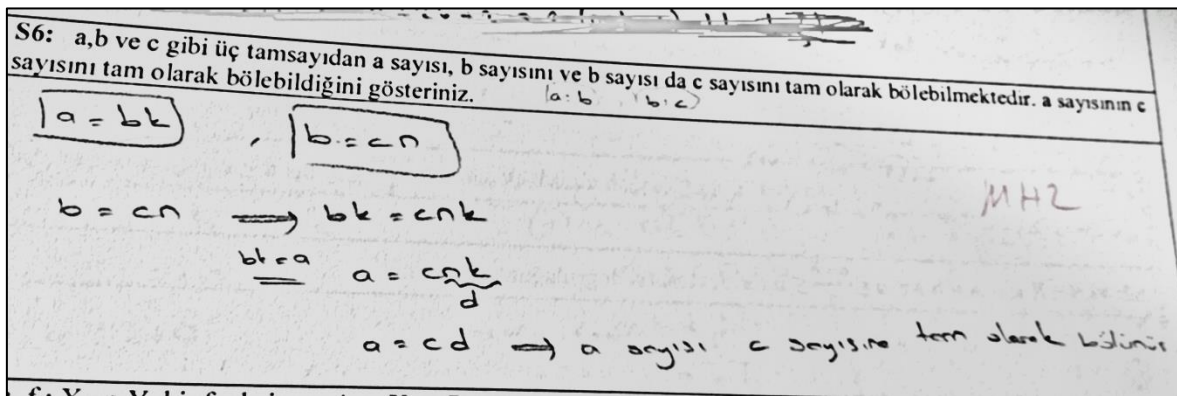 S6: a,b ve c gibi üç tamsayıdan a sayısı, b sayısını ve b sayısı da c sayısını tam olarak bölebilmektedir. a sayısının c
sayısını tam olarak bölebildiğini gösteriniz.
a:b , b:c
a = bk , b = cn
MH2
b = cn ⟹ bk = cnk
bk = a a = cnk
d
a = cd ⟹ a sayısı c sayısına tam olarak bölünür